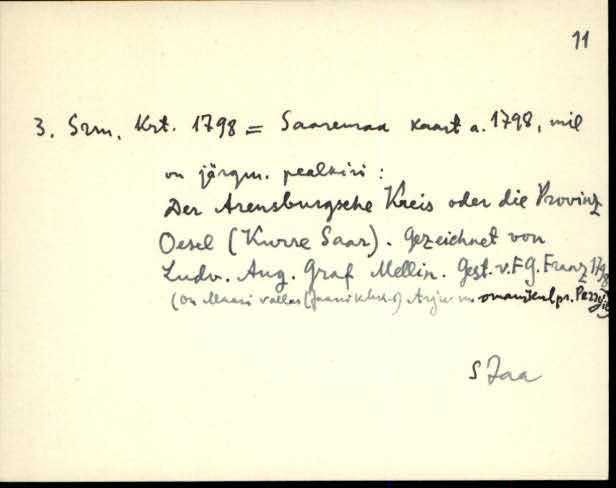 11
3. Srm. Krt. 1798 = Saaremaa kaart a. 1798, mil
on järgm. pealkiri :
Der Arensburgsche Kreis oder die Provinz
Oesel (Kurre Saar). Gezeichnet von
Ludv. Aug. Graf Mellin. Gest. v. F G. Franz 1798
(on Maasi vallas
S Jaa